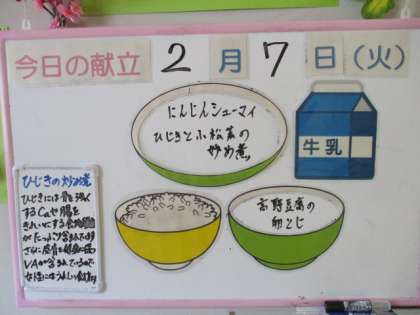 今日の献立 2月7日(火)
にんじんシューマイ
ひじきと小松菜の
炒め煮
牛乳
高野豆腐の
卵とじ
ひじきの炒め煮
ひじきには骨を強く
するCaや腸を
きれいにする食物繊維
がたっぷり含まれています
さらに皮膚を健康に保つ
VAが含まれているので
女性にはうれしい食材